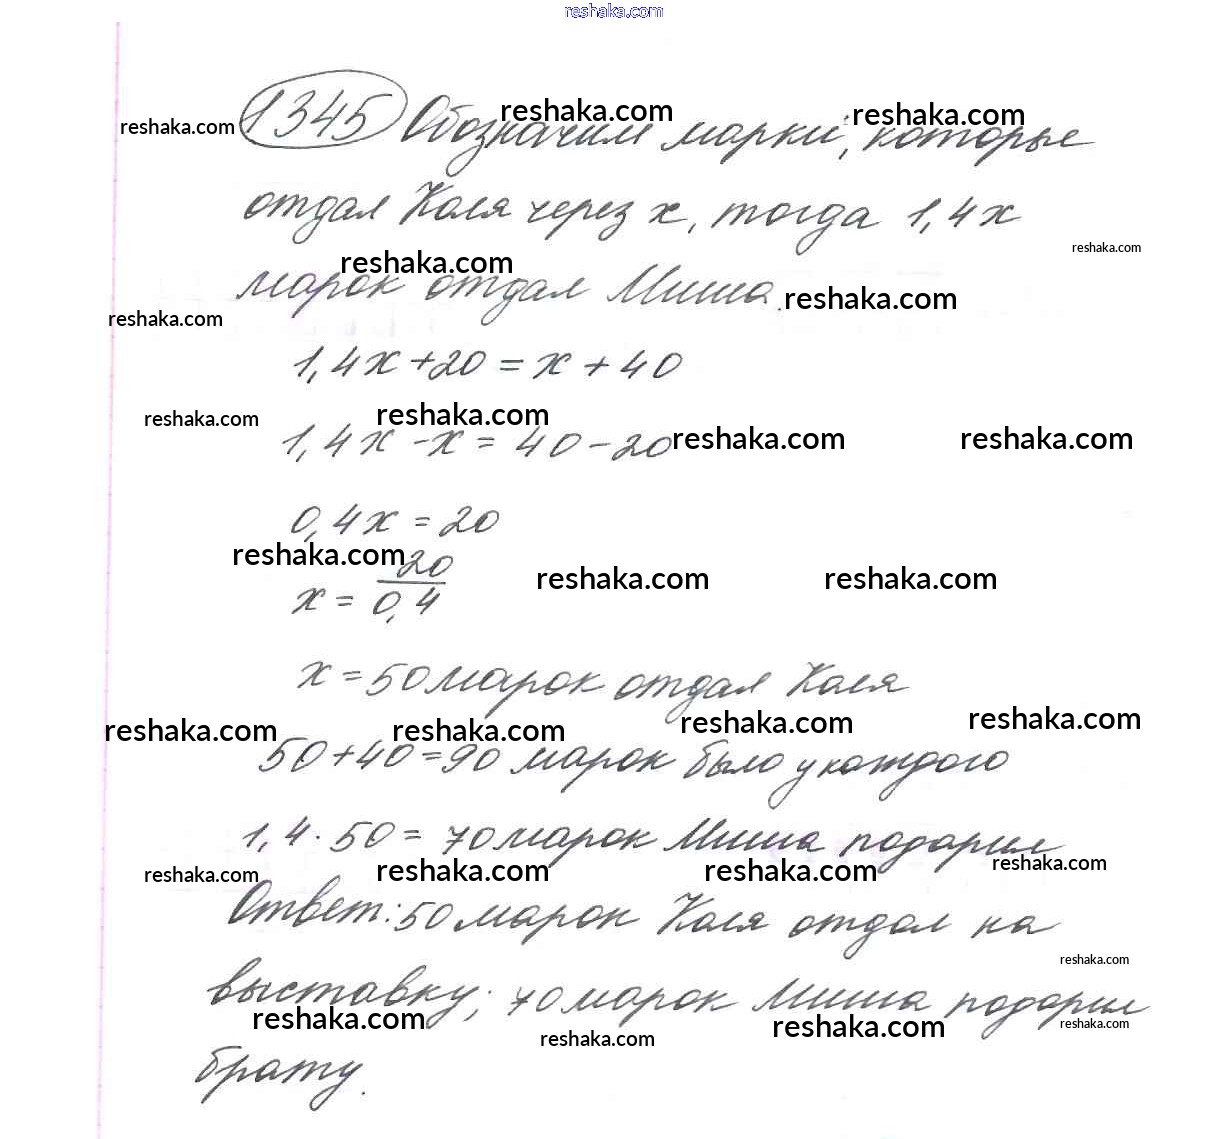 reshaka.com
1345 Обозначим марки, которые
reshaka.com reshaka.com reshaka.com
отдал Коля через x, тогда 1,4x
reshaka.com
марок отдал Миша.
reshaka.com reshaka.com reshaka.com
1,4x + 20 = x + 40
reshaka.com reshaka.com
1,4x - x = 40 - 20
reshaka.com reshaka.com
0,4x = 20
reshaka.com reshaka.com reshaka.com
x = 20/0,4
x = 50 марок отдал Коля
reshaka.com reshaka.com reshaka.com reshaka.com
50 + 40 = 90 марок было у каждого
1,4 · 50 = 70 марок Миша подарил
reshaka.com reshaka.com reshaka.com reshaka.com
Ответ: 50 марок Коля отдал на
reshaka.com
выставку; 70 марок Миша подарил
reshaka.com reshaka.com reshaka.com reshaka.com
брату.